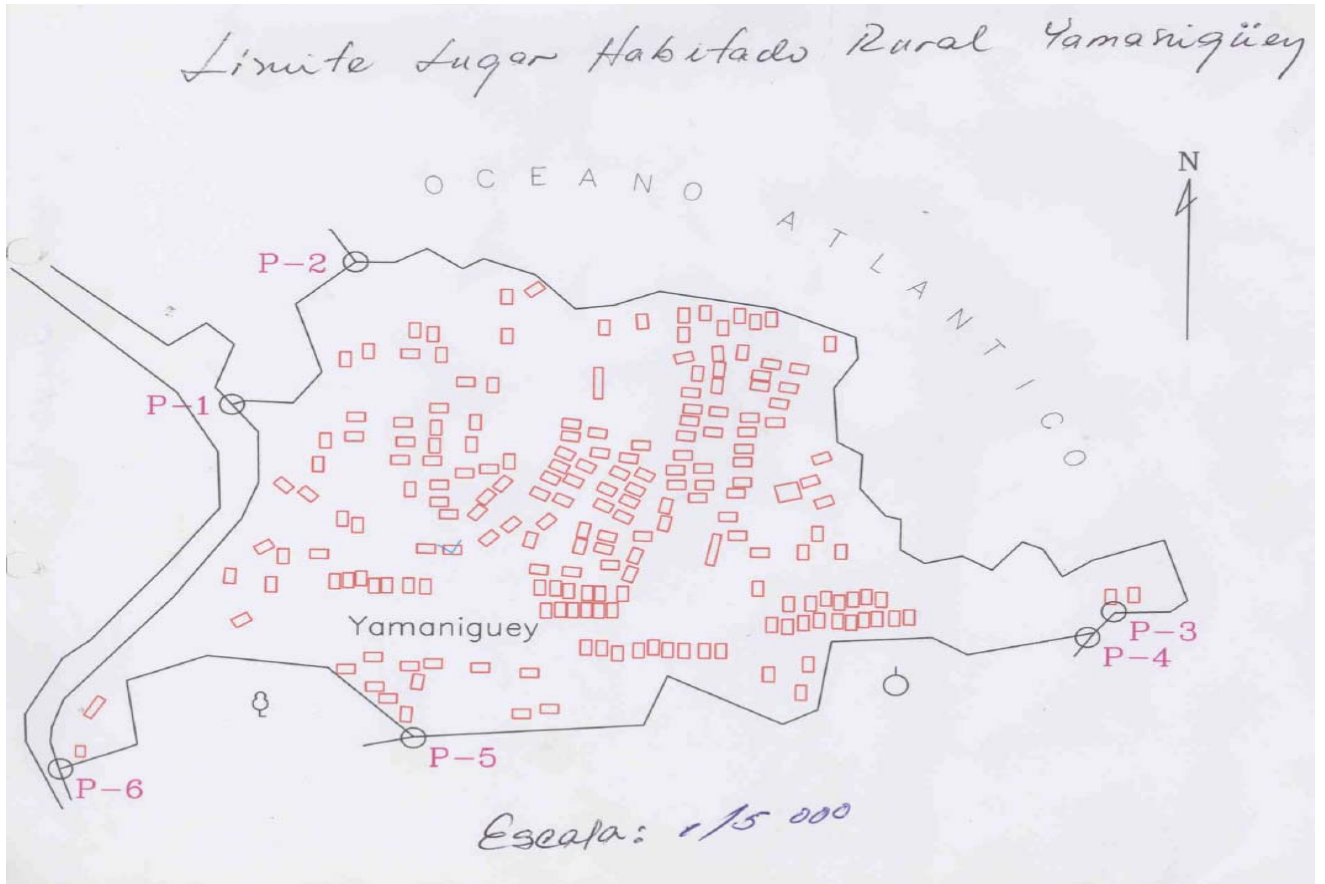 Limite Lugar Habitado Rural Yamanigüey
OCEANO ATLANTICO
N
P-2
P-1
P-3
P-4
Yamaniguey
P-5
P-6
Escala: 1/5 000